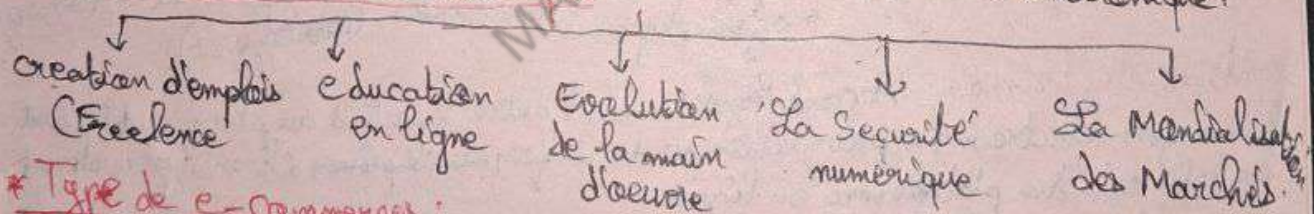 creation d'emplois
(Freelence
education
en ligne
Evolution
de la main
d'oeuvre
La Securité
numérique
La Mondialisation
des Marchés.
* Type de e-commerces :
MA